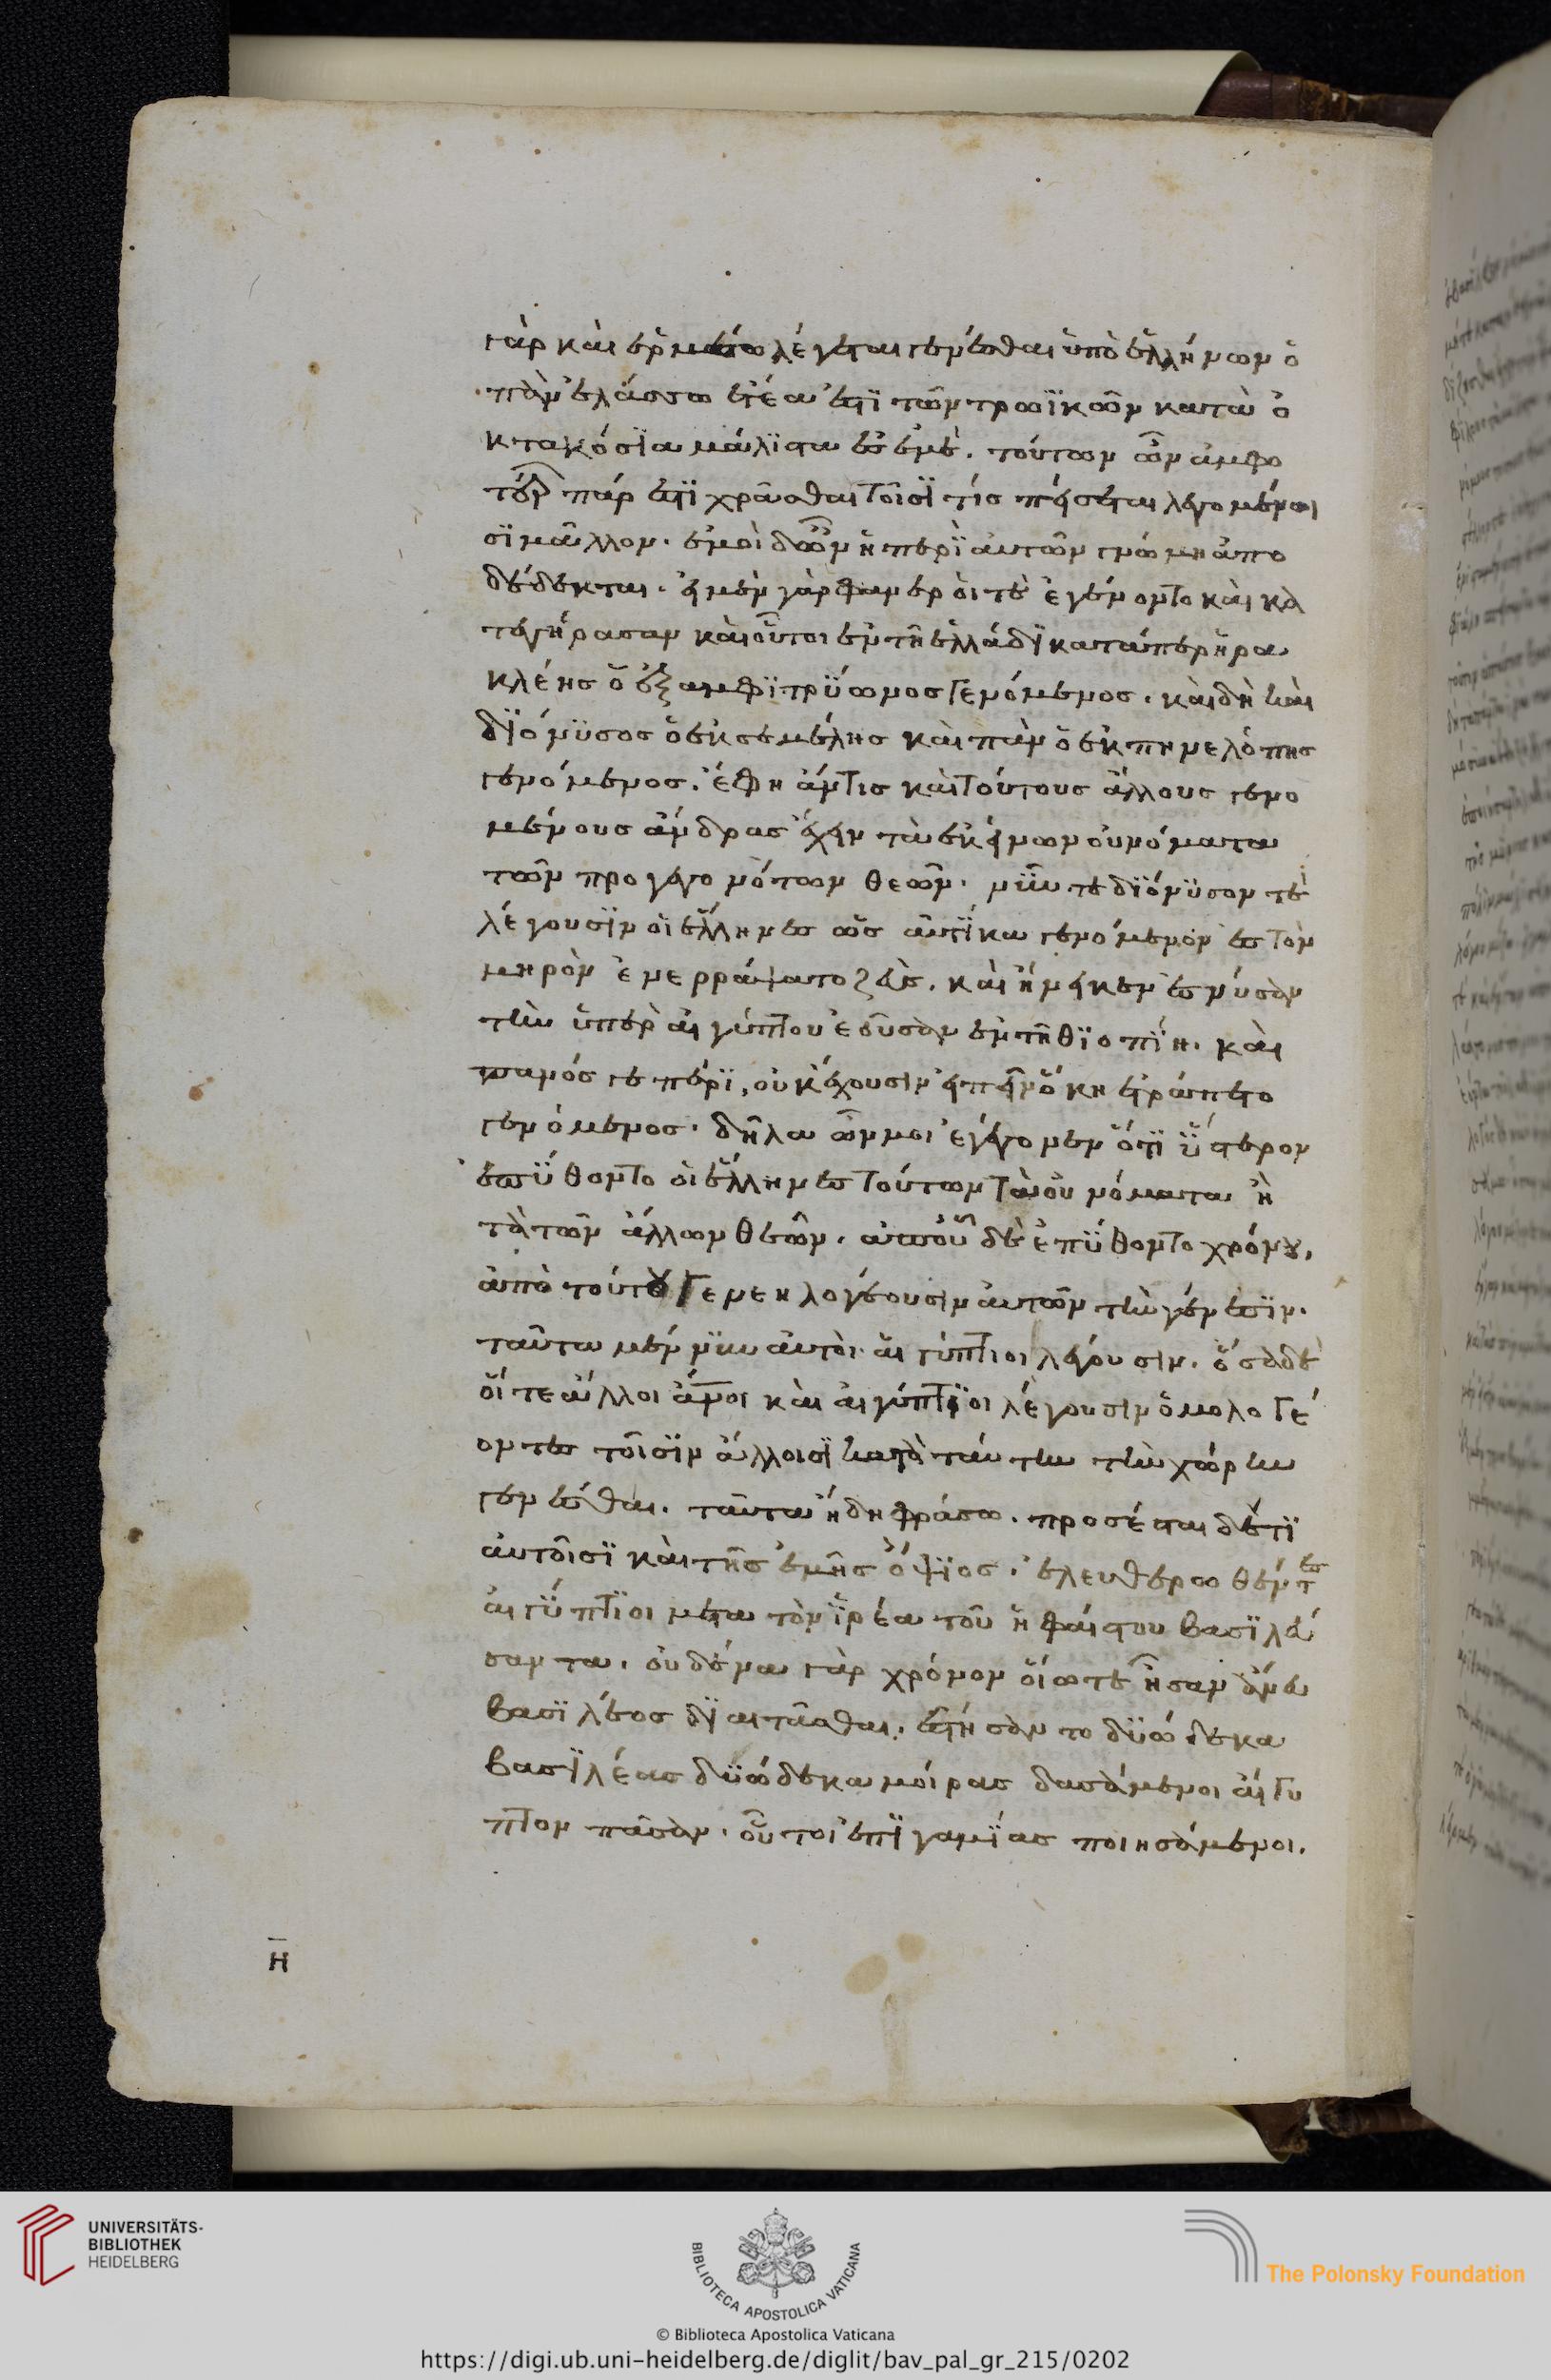 γὰρ καὶ ἑρμέω λέγεται γενέσθαι ὑπὸ ἑλλήνων ὁ
πὰν ἐλάσσω ἔτεα ἐστὶ τῶν τρωϊκῶν κατὰ ὀ
κτακόσϊα μάλϊστα ἐς ἐμέ. τούτων ὦν ἀμφο
τέρων πάρεστϊ χρᾶσθαι τοῖσϊ τίς πείσεται λεγομένοι
σϊ μᾶλλον. ἐμοὶ δ ὦν ἡ περὶ αὐτῶν γνώμη ἀπο
δέδεκται. εἰ μὲν γὰρ φανεροί τε ἐγένοντο καὶ κα
τεγήρασαν καὶ οὗτοι ἐν τῆ ἑλλάδϊ κατάπερ ἡρα
κλέης ὁ ἐξ ἀμφϊτρύωνος γενόμενος. καὶ δὴ καὶ
δϊόνϋσος ὁ ἐκ σεμέλης καὶ πὰν ὁ ἐκ πηνελόπης
γενόμενος. ἔφη ἄν τις καὶ τούτους ἄλλους γενο
μένους ἄνδρας ἔχειν τὰ ἐκείνων οὐνόματα
τῶν προγεγονότων θεῶν. νῦν τε δϊόνϋσόν τε
λέγουσϊν οἱ ἕλληνες ὡς αὐτϊκα γενόμενον ἐς τὸν
μηρὸν ἐνερράψατο ζεύς. καὶ ἤνεικεν ἐς νύσαν
τὴν ὑπὲρ αἰγύπτου ἐοῦσαν ἐν τῆ θϊοπϊη. καὶ
πανός γε πέρϊ, οὐκ ἔχουσιν εἰπεῖν ὅκη ἐτράπετο
γενόμενος. δῆλα ὦν μοι ἐγέγονεν ὅτϊ ὕστερον
ἐπϋθοντο οἱ ἕλληνες τούτων τὰ οὐνόματα ἢ
τὰ τῶν ἄλλων θεῶν. ἀπ οὗ δὲ ἐπϋθοντο χρόνου,
ἀπὸ τούτου γενεηλογέουσιν αὐτῶν τὴν γένεσϊν.
ταῦτα μέν νϋν αὐτοὶ αἰγύπτιοι λέγουσιν. ὅσα δὲ
οἵ τε ἄλλοι ἄνοι καὶ αἰγύπτϊοι λέγουσιν ὁμολογέ
οντες τοῖσϊν ἄλλοισϊ κατὰ ταύτην τὴν χώρην
γενέσθαι. ταῦτα ἤδη φράσω. προσέσται δέ τϊ
αὐτοῖσϊ καὶ τῆς ἐμῆς ὄψϊος. ἐλευθερωθέντες
αἰγϋπτϊοι μετὰ τὸν ἱρέα τοῦ ἡφαίστου βασϊλεύ
σαντα. οὐδένα γὰρ χρόνον οἷοί τε ἦσαν ἄνευ
βασϊλέος δϊαιτᾶσθαι. ἐστήσαντο δϋώδεκα
βασϊλέας δυώδεκα μοίρας δασάμενοι αἴγυ
πτον πᾶσαν. οὗτοι ἐπϊγαμϊας ποιησάμενοι.
Η
UNIVERSITÄTS-
BIBLIOTHEK
HEIDELBERG
BIBLIOTECA APOSTOLICA VATICANA
The Polonsky Foundation
© Biblioteca Apostolica Vaticana
https://digi.ub.uni-heidelberg.de/diglit/bav_pal_gr_215/0202